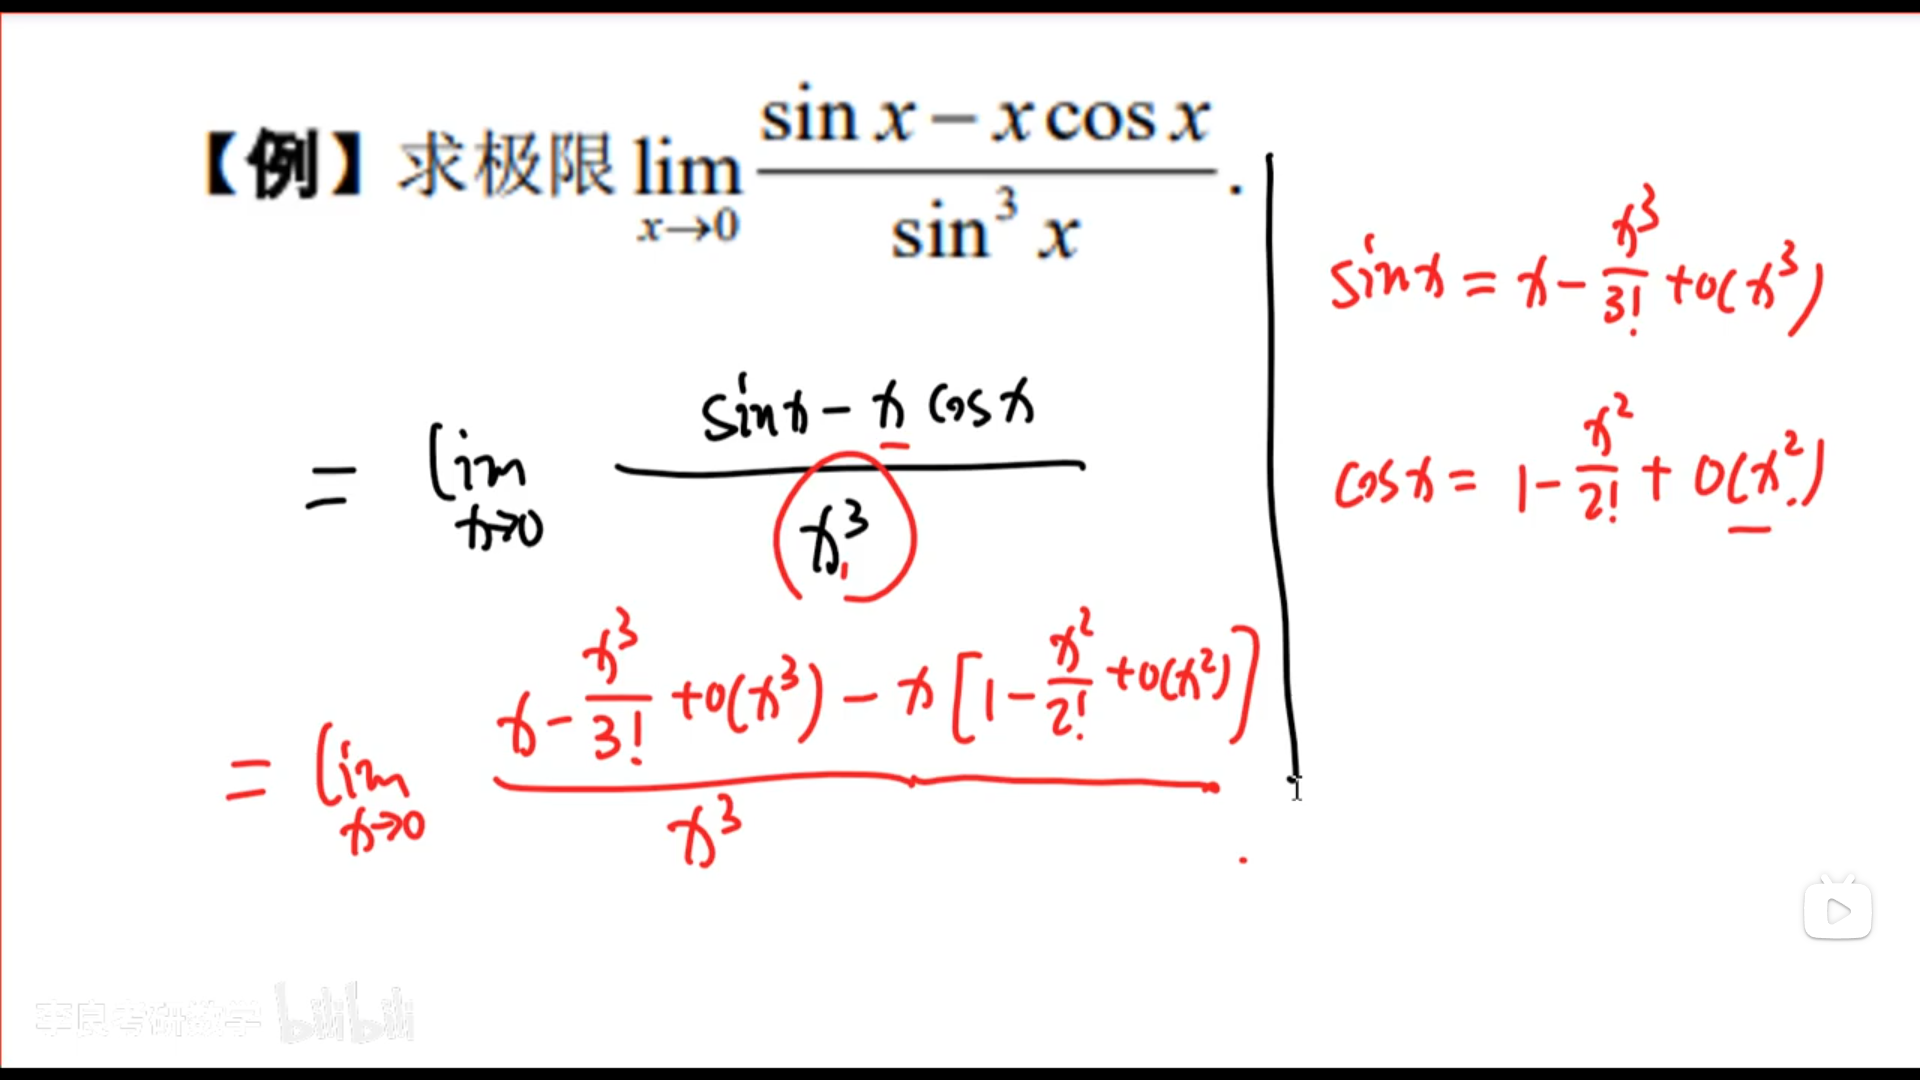 【例】求极限 lim x→0 (sin x − x cos x) / (sin³ x) .
= lim x→0 (sinx − x cosx) / (x³)
= lim x→0 (x − x³/3! + o(x³) − x[1 − x²/2! + o(x²)]) / (x³)
sinx = x − x³/3! + o(x³)
cosx = 1 − x²/2! + o(x²)
李良考研数学 bilibili